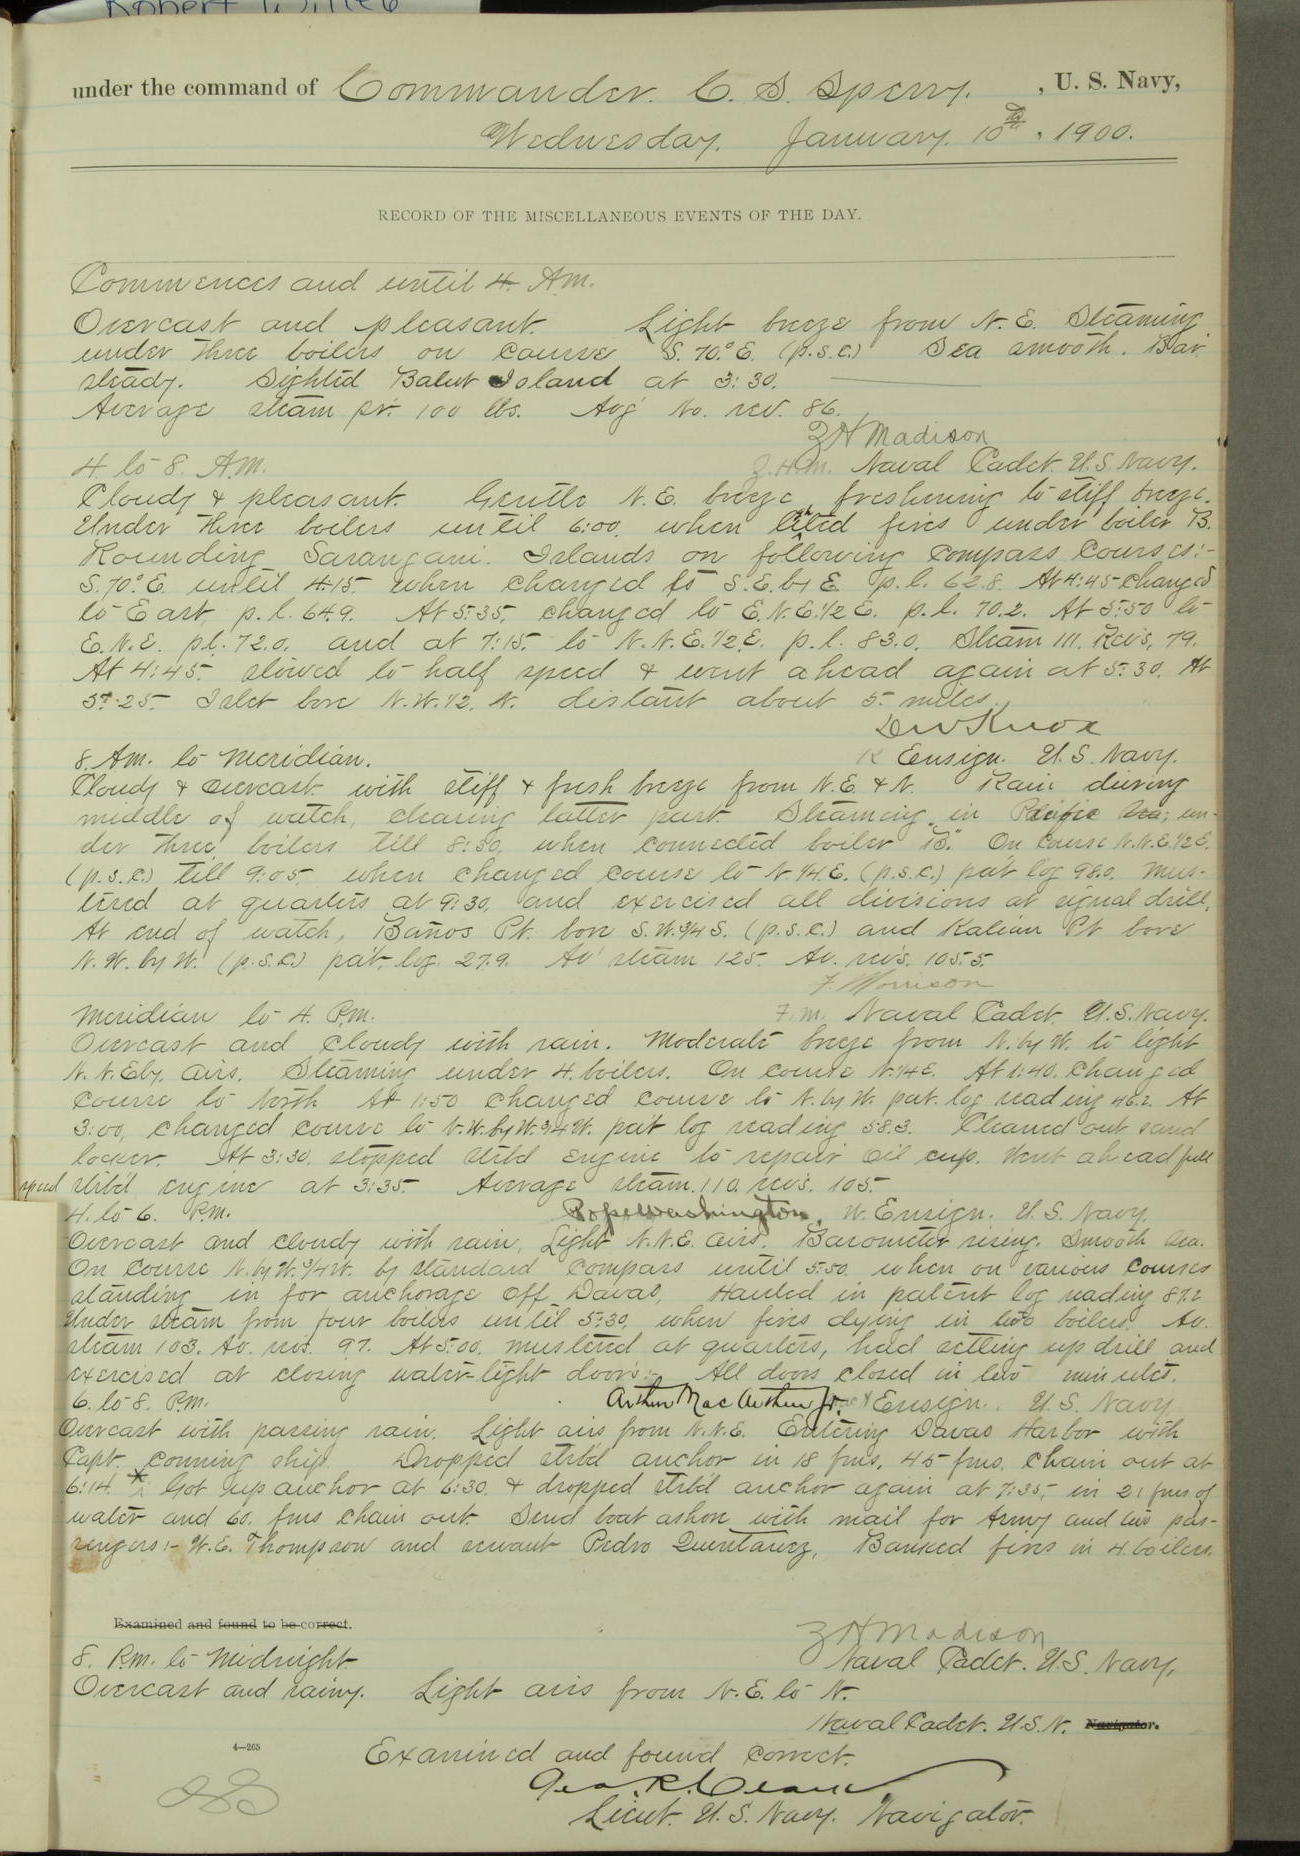 under the command of Commander. C. S. Sperry. , U. S. Navy,
Wednesday. January. 10th , 1900.
RECORD OF THE MISCELLANEOUS EVENTS OF THE DAY.
Commences and until 4. A.M.
Overcast and pleasant. Light breeze from N.E. Steaming
under three boilers on course S. 70.° E. (p.s.c.) Sea smooth. Bar.
steady. Sighted Balut Island at 3:30.
Average steam pr. 100 lbs. Avg. No. rev. 86.
Z H Madison
4 to 8. A.M. Z.H.M. Naval Cadet. U.S. Navy.
Cloudy & pleasant. Gentle N.E. breeze freshening to stiff breeze.
Under three boilers until 6:00, when lited fires under boiler B.
Rounding Sarangani. Islands on following compass courses:-
S. 70.° E. until 4:15. when changed to S.E. by E p.l. 62.8. At 4:45 changed
to East, p.l. 64.9. At 5:35, changed to E.N.E. 1/2 E. p.l. 70.2. At 5:50 to
E.N.E. p.l. 72.0. and at 7:15. to N.N.E. 1/2 E. p.l. 83.0. Steam 111. Revs. 79.
At 4:45. slowed to half speed & went ahead again at 5:30. At
5:25. Islet bore N.W. 1/2. N. distant about 5. miles.
D W Knox
8. A.m. to Meridian. K Ensign. U.S. Navy.
Cloudy & overcast. with stiff & fresh breeze from N.E. & N. Rain during
middle of watch, clearing latter part. Steaming in Pacific Sea; un-
der three boilers till 8:30, when connected boiler "B". On course N.N.E. 1/2 E.
(p.s.c.) till 9:05. when changed course to N. 1/4. E. (p.s.c.) pat. log 98.0. Mus-
tered at quarters at 9:30, and exercised all divisions at signal drill.
At end of watch, Baños Pt. bore S.W. 3/4 S. (p.s.c.) and Kalian Pt bore
N.W. by W. (p.s.c.) pat. log. 27.9. Av. steam 125. Av. revs. 105.5.
F. Morrison
Meridian to 4. P.m. F.m. Naval Cadet. U.S. Navy.
Overcast and cloudy with rain. Moderate breeze from N. by W. to light
N.N.E'ly. airs. Steaming under 4. boilers. On course N. 1/4 E. At 1:40. changed
course to North At 1:50 changed course to N. by W. pat. log reading 46.2. At
3:00, changed course to N.W. by N. 3/4 W. pat log reading 58.3. Cleaned out sand
locker. At 3:30. stopped stb'd engine to repair oil cup. Went ahead full
speed stb'd engine at 3:35. Average steam. 110. revs. 105.
4. to 6. P.m. Pope Washington, W. Ensign. U.S. Navy.
Overcast and cloudy with rain, Light N.N.E. airs. Barometer rising. Smooth sea.
On course N. by W. 3/4 W. by standard compass until 5:50. when on various courses
standing in for anchorage off Davao, Hauled in patent log reading 87.2
Under steam from four boilers until 5:30, when fires dying in two boilers. Av.
steam 103. Av. revs. 97. At 5:00. mustered at quarters, had setting up drill and
exercised at closing water-tight doors:- All doors closed in two minutes.
6. to 8. P.m. Arthur MacArthur Jr. Ensign. U.S. Navy
Overcast with passing rain. Light airs from N.N.E. Entering Davao Harbor with
Capt. conning ship. Dropped stb'd anchor in 18 fms, 45 fms. chain out at
6:14. * Got up anchor at 6:30. & dropped stb'd anchor again at 7:35, in 21 fms of
water and 60. fms chain out. Send boat ashore with mail for Army and two pas-
sengers:- W.E. Thompson and servant Pedro Quintanez, Banked fires in 4. boilers.
Examined and found to be correct. Z H Madison
8. P.m. to Midnight. Naval Cadet. U.S. Navy.
Overcast and rainy. Light airs from N.E. to N.
Naval Cadet. U.S.N. Navigator.
4—265
Examined and found correct.
Geo. R. Clark
Lieut. U.S. Navy. Navigator.